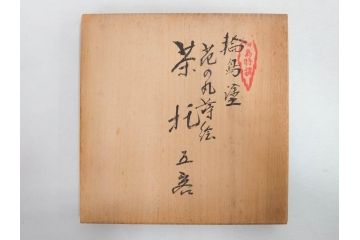 輪島塗
花の丸蒔絵
茶托 五客